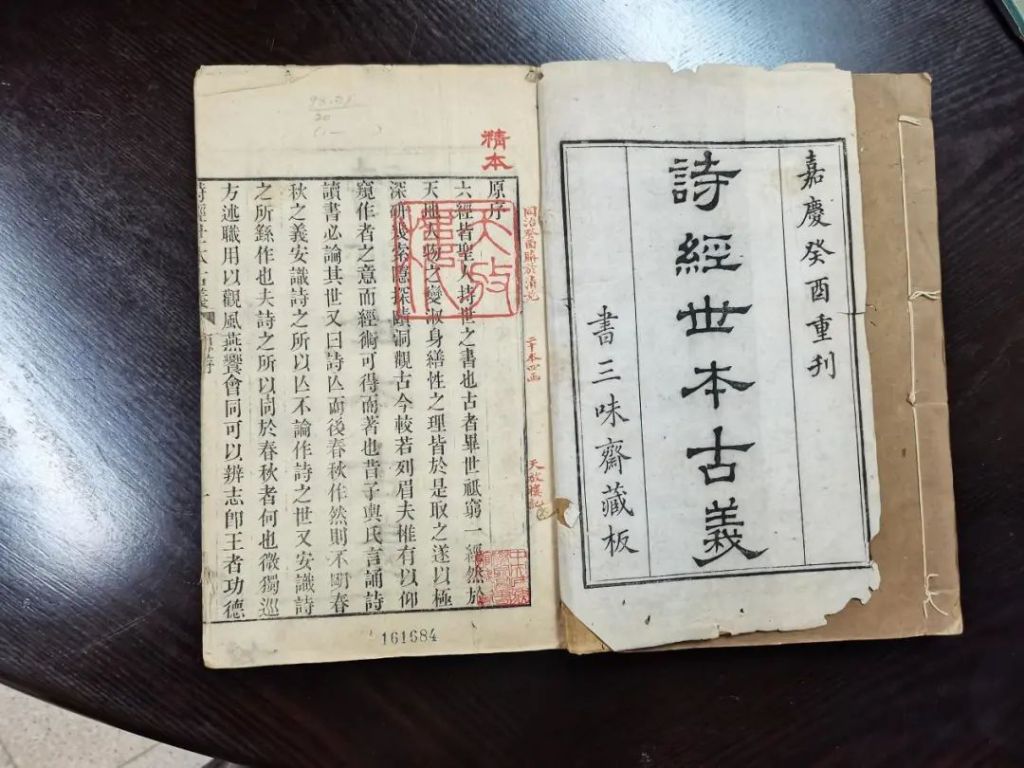 嘉慶癸酉重刊
詩經世本古義
書三味齋藏板
同治癸酉購於清苑
二十本四函
天放樓記
精本
原序
六經皆聖人持世之書也古者畢世祗窮一經然於
天地人物之變淑身繕性之理皆於是取之遂以極
深研幾索隱探賾洞觀古今較若列眉夫惟有以仰
窺作者之意而經術可得而著也昔子輿氏言誦詩
讀書必論其世又曰詩亾而後春秋作然則不明春
秋之義安識詩之所以亾不論作詩之世又安識詩
之所繇作也夫詩之所以同於春秋者何也微獨巡
方述職用以觀風燕饗會同可以辨志卽王者功德
161684